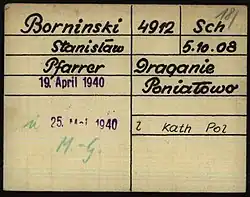 Borninski 4912 Sch
Stanisław 5.10.08
Pfarrer Draganie
19. April 1940 Poniałowo
25. Mai 1940 l kath Pol
M-G.